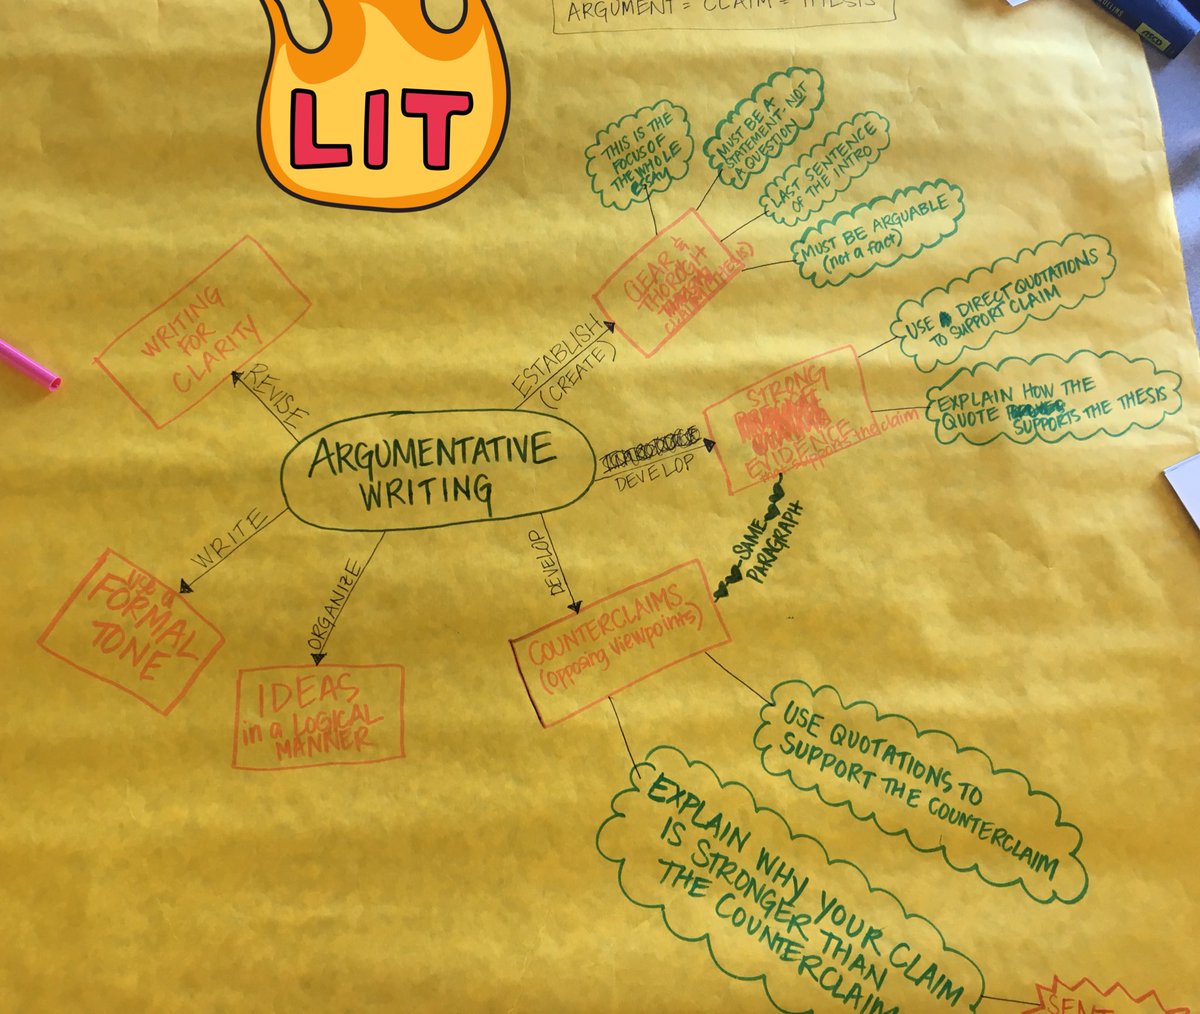 ARGUMENT = CLAIM = THESIS
LIT
THIS IS THE
FOCUS OF
THE WHOLE
ESSAY
MUST BE A
STATEMENT, NOT
A QUESTION
LAST SENTENCE
OF THE INTRO
MUST BE ARGUABLE
(not a fact)
CLEAR &
THOROGH
ESTABLISH
(CREATE)
WRITING
FOR
CLARITY
REVISE
USE DIRECT QUOTATIONS
TO SUPPORT CLAIM
EXPLAIN HOW THE
QUOTE SUPPORTS THE THESIS
STRONG
EVIDENCE
support the claim
DEVELOP
ARGUMENTATIVE
WRITING
SAME
PARAGRAPH
WRITE
use a
FORMAL
TONE
ORGANIZE
IDEAS
in a LOGICAL
MANNER
DEVELOP
COUNTERCLAIMS
(opposing viewpoints)
USE QUOTATIONS TO
SUPPORT THE COUNTERCLAIM
EXPLAIN WHY YOUR CLAIM
IS STRONGER THAN
THE COUNTERCLAIM
SENT
ASCD